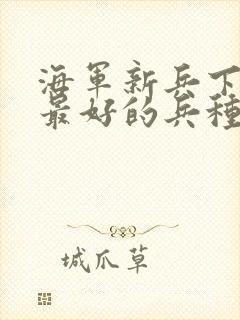 海軍新兵下
最好的兵種
城爪草